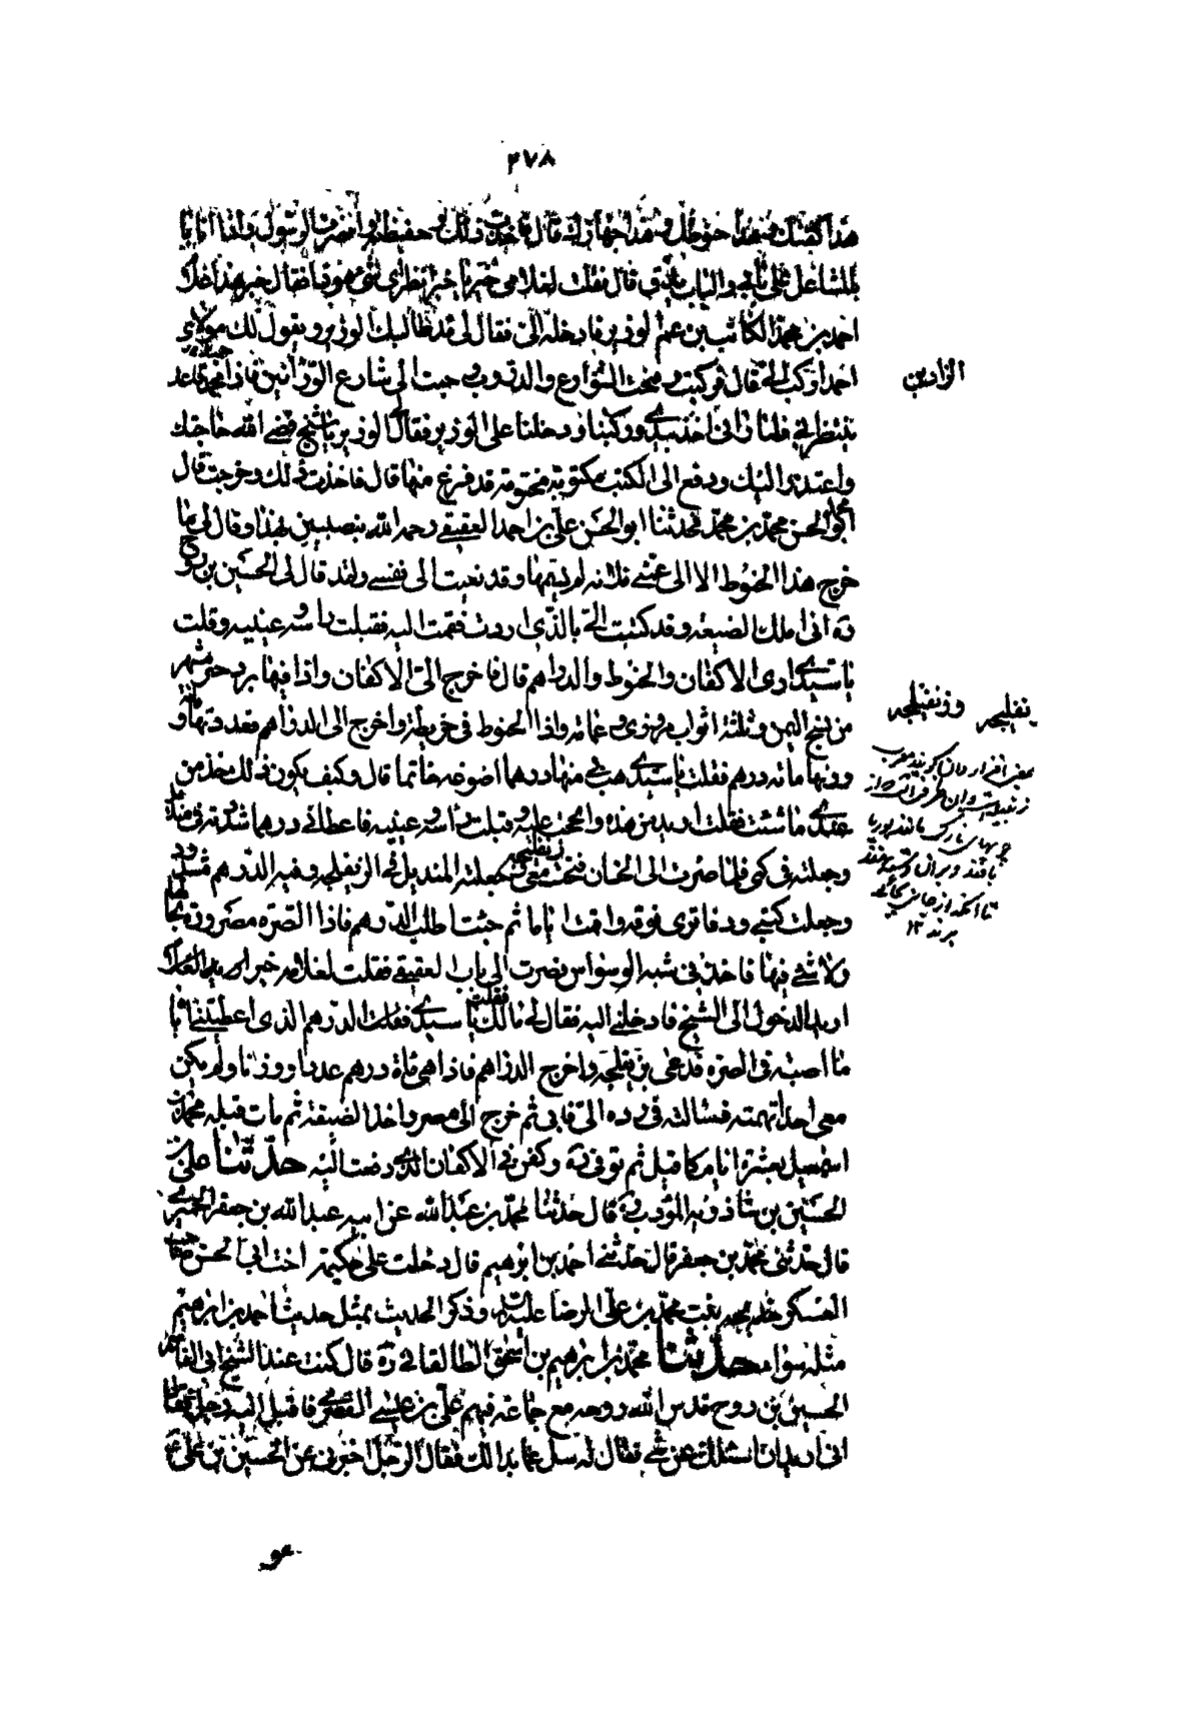 ٢٧٨
هذا كفنك وهذا حنوطك وهذا جهازك قال فاخذت ذلك وحفظته وانصرف الرسول واذا انا
بالمشاعل على بابي والباب يدق قال فقلت لغلامي خير يا خير انظر اي شئ هو ذا فقال خير هذا غلام
احمد بن محمد الكاتب بن عم الوزير فادخله الي فقال لي قد طلبك الوزير ويقول لك مولاي
احمد اركب الي قال فركبت وفتحت الشوارع والدروب وجئت الى شارع الوزانين فاذا بحميد قاعد
ينتظرني فلما راني اخذ بيدي وركبنا ودخلنا على الوزير فقال لي الوزير يا شيخ قضى الله حاجتك
واعتذر اليك ودفع الى الكتب مكتوبة مختومة قد فرغ منها قال فاخذت ذلك وخرجت قال
ابو محمد الحسن بن محمد فحدثنا ابو الحسن علي بن احمد العقيقي رحمه الله بنصيبين بهذا وقال لي ما
خرج هذا الحنوط الا الى عمتي فلانة لم يسمها وقد نعيت الى نفسي ولقد قال لي الحسين بن روح
ره اني املك الضيعة وقد كتبت الي بالذي اردت فقمت اليه فقبلت راسه وعينيه وقلت
يا سيدي ارني الاكفان والحنوط والدراهم قال فاخرج الي الاكفان واذا فيها برد حبر مسهم
من نسج اليمن وثلثة اثواب مروي وعمامة واذا الحنوط في خريطة واخرج الى الدراهم فعددتها مائة
وزنها مائة درهم فقلت يا سيدي هب لي منها درهما اصوغه خاتما قال وكيف يكون ذلك خذ من
عندي ما شئت فقلت اريد من هذه والححت عليه وقبلت راسه وعينيه فاعطاني درهما شددته في منديل
وجعلته في كمي فلما صرت الى الخان فتحت زنفيلجة معي وجعلت المنديل في الزنفيلجة وفيه الدرهم مشدود
وجعلت كتبي ودفاتري فوقه واقمت اياما ثم جئت اطلب الدرهم فاذا الصرة مصرورة بحالها
ولا شئ فيها فاخذني شبه الوسواس فصرت الى باب العقيقي فقلت لغلامه خير
اريد الدخول الى الشيخ فادخلني اليه فقال لي مالك فقلت يا سيدي فقلت الدرهم الذي اعطيتني اياه
ما اصبته في الصرة فدعى بزنفيلجة واخرج الدراهم فاذا هي مائة درهم عددا ووزنا ولم يكن
معي احد اتهمته فسالته في رده الي فابى ثم خرج الى مصر واخذ الضيعة ثم مات قبله محمد بن
اسمعيل بعشرة ايام كما قيل ثم توفي ره وكفن في الاكفان الذي دفعت اليه حدثنا علي بن
الحسين بن شاذويه المؤدب ره قال حدثنا محمد بن عبدالله عن ابيه عبدالله بن جعفر الحميري
قال حدثني محمد بن جعفر قال حدثني احمد بن ابرهيم قال دخلت على حكيمة اخت ابي الحسن صاحب
العسكر خديجه بنت محمد بن علي الرضا عليه وذكر الحديث بمثل حديث احمد بن ابرهيم
مثله سواء حدثنا محمد بن ابرهيم بن اسحق الطالقاني ره قال كنت عند الشيخ ابي القاسم
الحسين بن روح قدس الله روحه مع جماعة فيهم علي بن عيسى القصري فاقبل اليه رجل فقال
اني اريد ان اسئلك عن شئ فقال له سل عما بدا لك فقال الرجل اخبرني عن الحسين بن علي
الزادين
نفليجه وزنفيلجه
معرب
برند ١٢